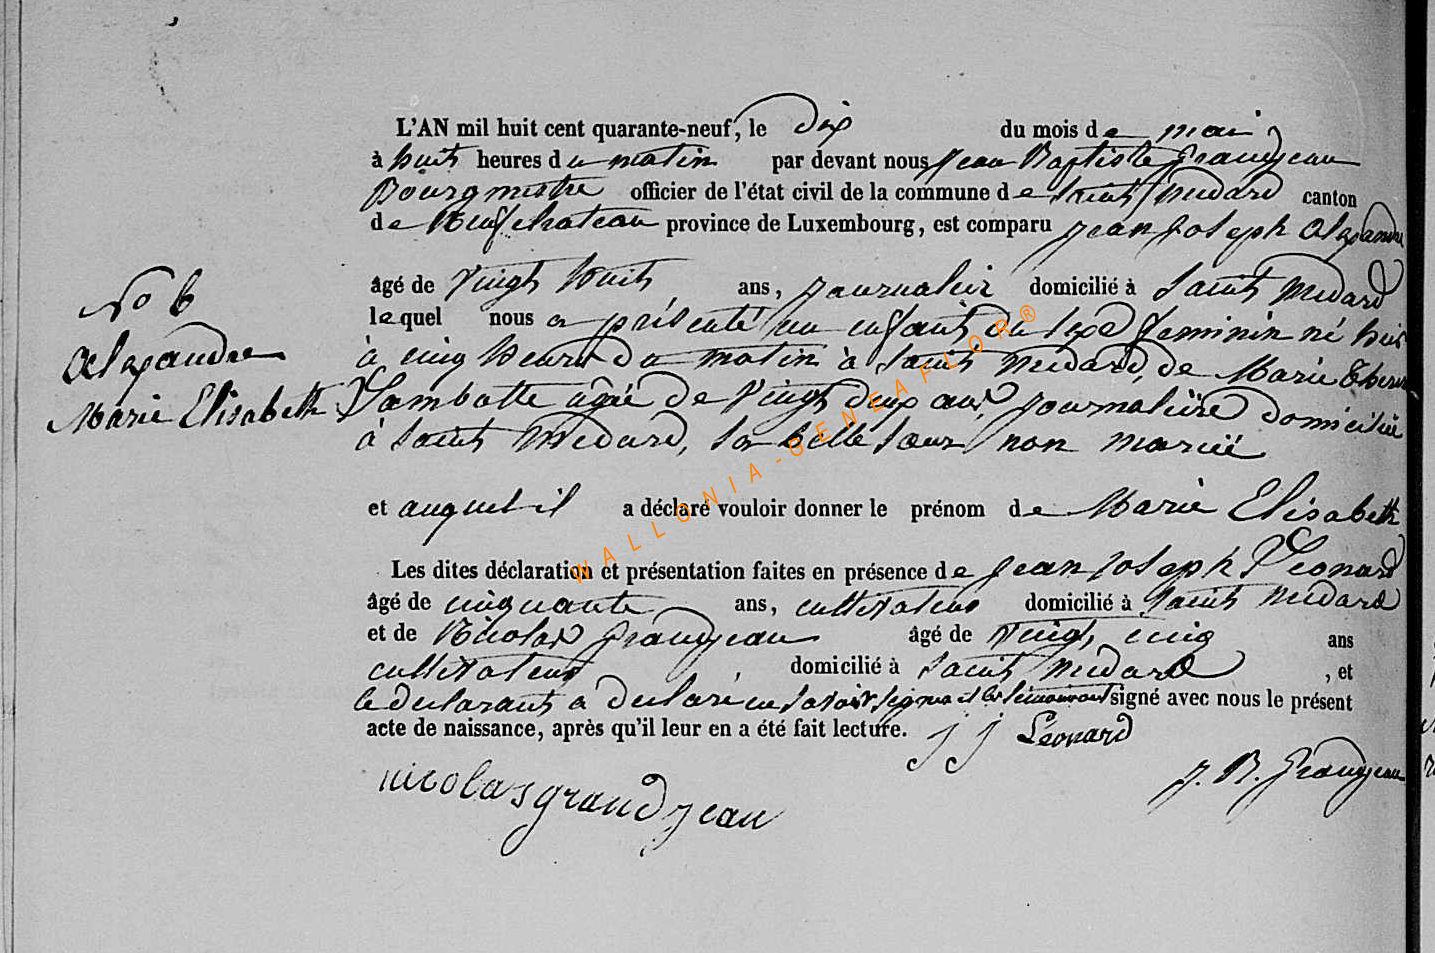 L'AN mil huit cent quarante-neuf, le dix du mois de mai
à huit heures du matin par devant nous Jean Baptiste Grandjean
Bourgmestre officier de l'état civil de la commune de Saint Medard canton
de Neufchateau province de Luxembourg, est comparu Jean Joseph Alexandre
âgé de vingt huit ans, journalier domicilié à Saint Medard
No 6
Alexandre
Marie Elisabeth
lequel nous a présenté un enfant du sexe feminin né hier
à cinq heures du matin à Saint Medard, de Marie Therese
Lambotte agée de vingt deux ans journalière domiciliée
à Saint Medard, sa belle soeur non mariée
et auquel il a déclaré vouloir donner le prénom de Marie Elisabeth
Les dites déclaration et présentation faites en présence de Jean Joseph Léonard
âgé de cinquante ans, cultivateur domicilié à Saint Medard
et de Nicolas Grandjean âgé de vingt cinq ans
cultivateur domicilié à Saint Medard , et
le declarant a declaré ne savoir signer et les témoins ont signé avec nous le présent
acte de naissance, après qu'il leur en a été fait lecture. j j Léonard
J. B. Grandjean
nicolas grandjean
WALLONIA-GENEAFLOR®